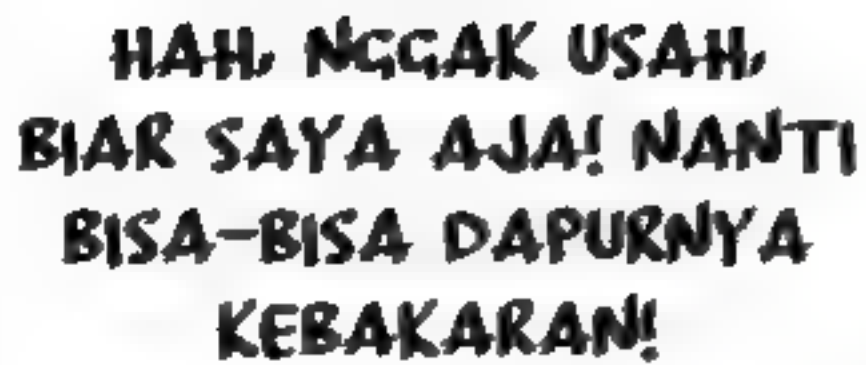 HAH, NGGAK USAH,
BIAR SAYA AJA! NANTI
BISA-BISA DAPURNYA
KEBAKARAN!